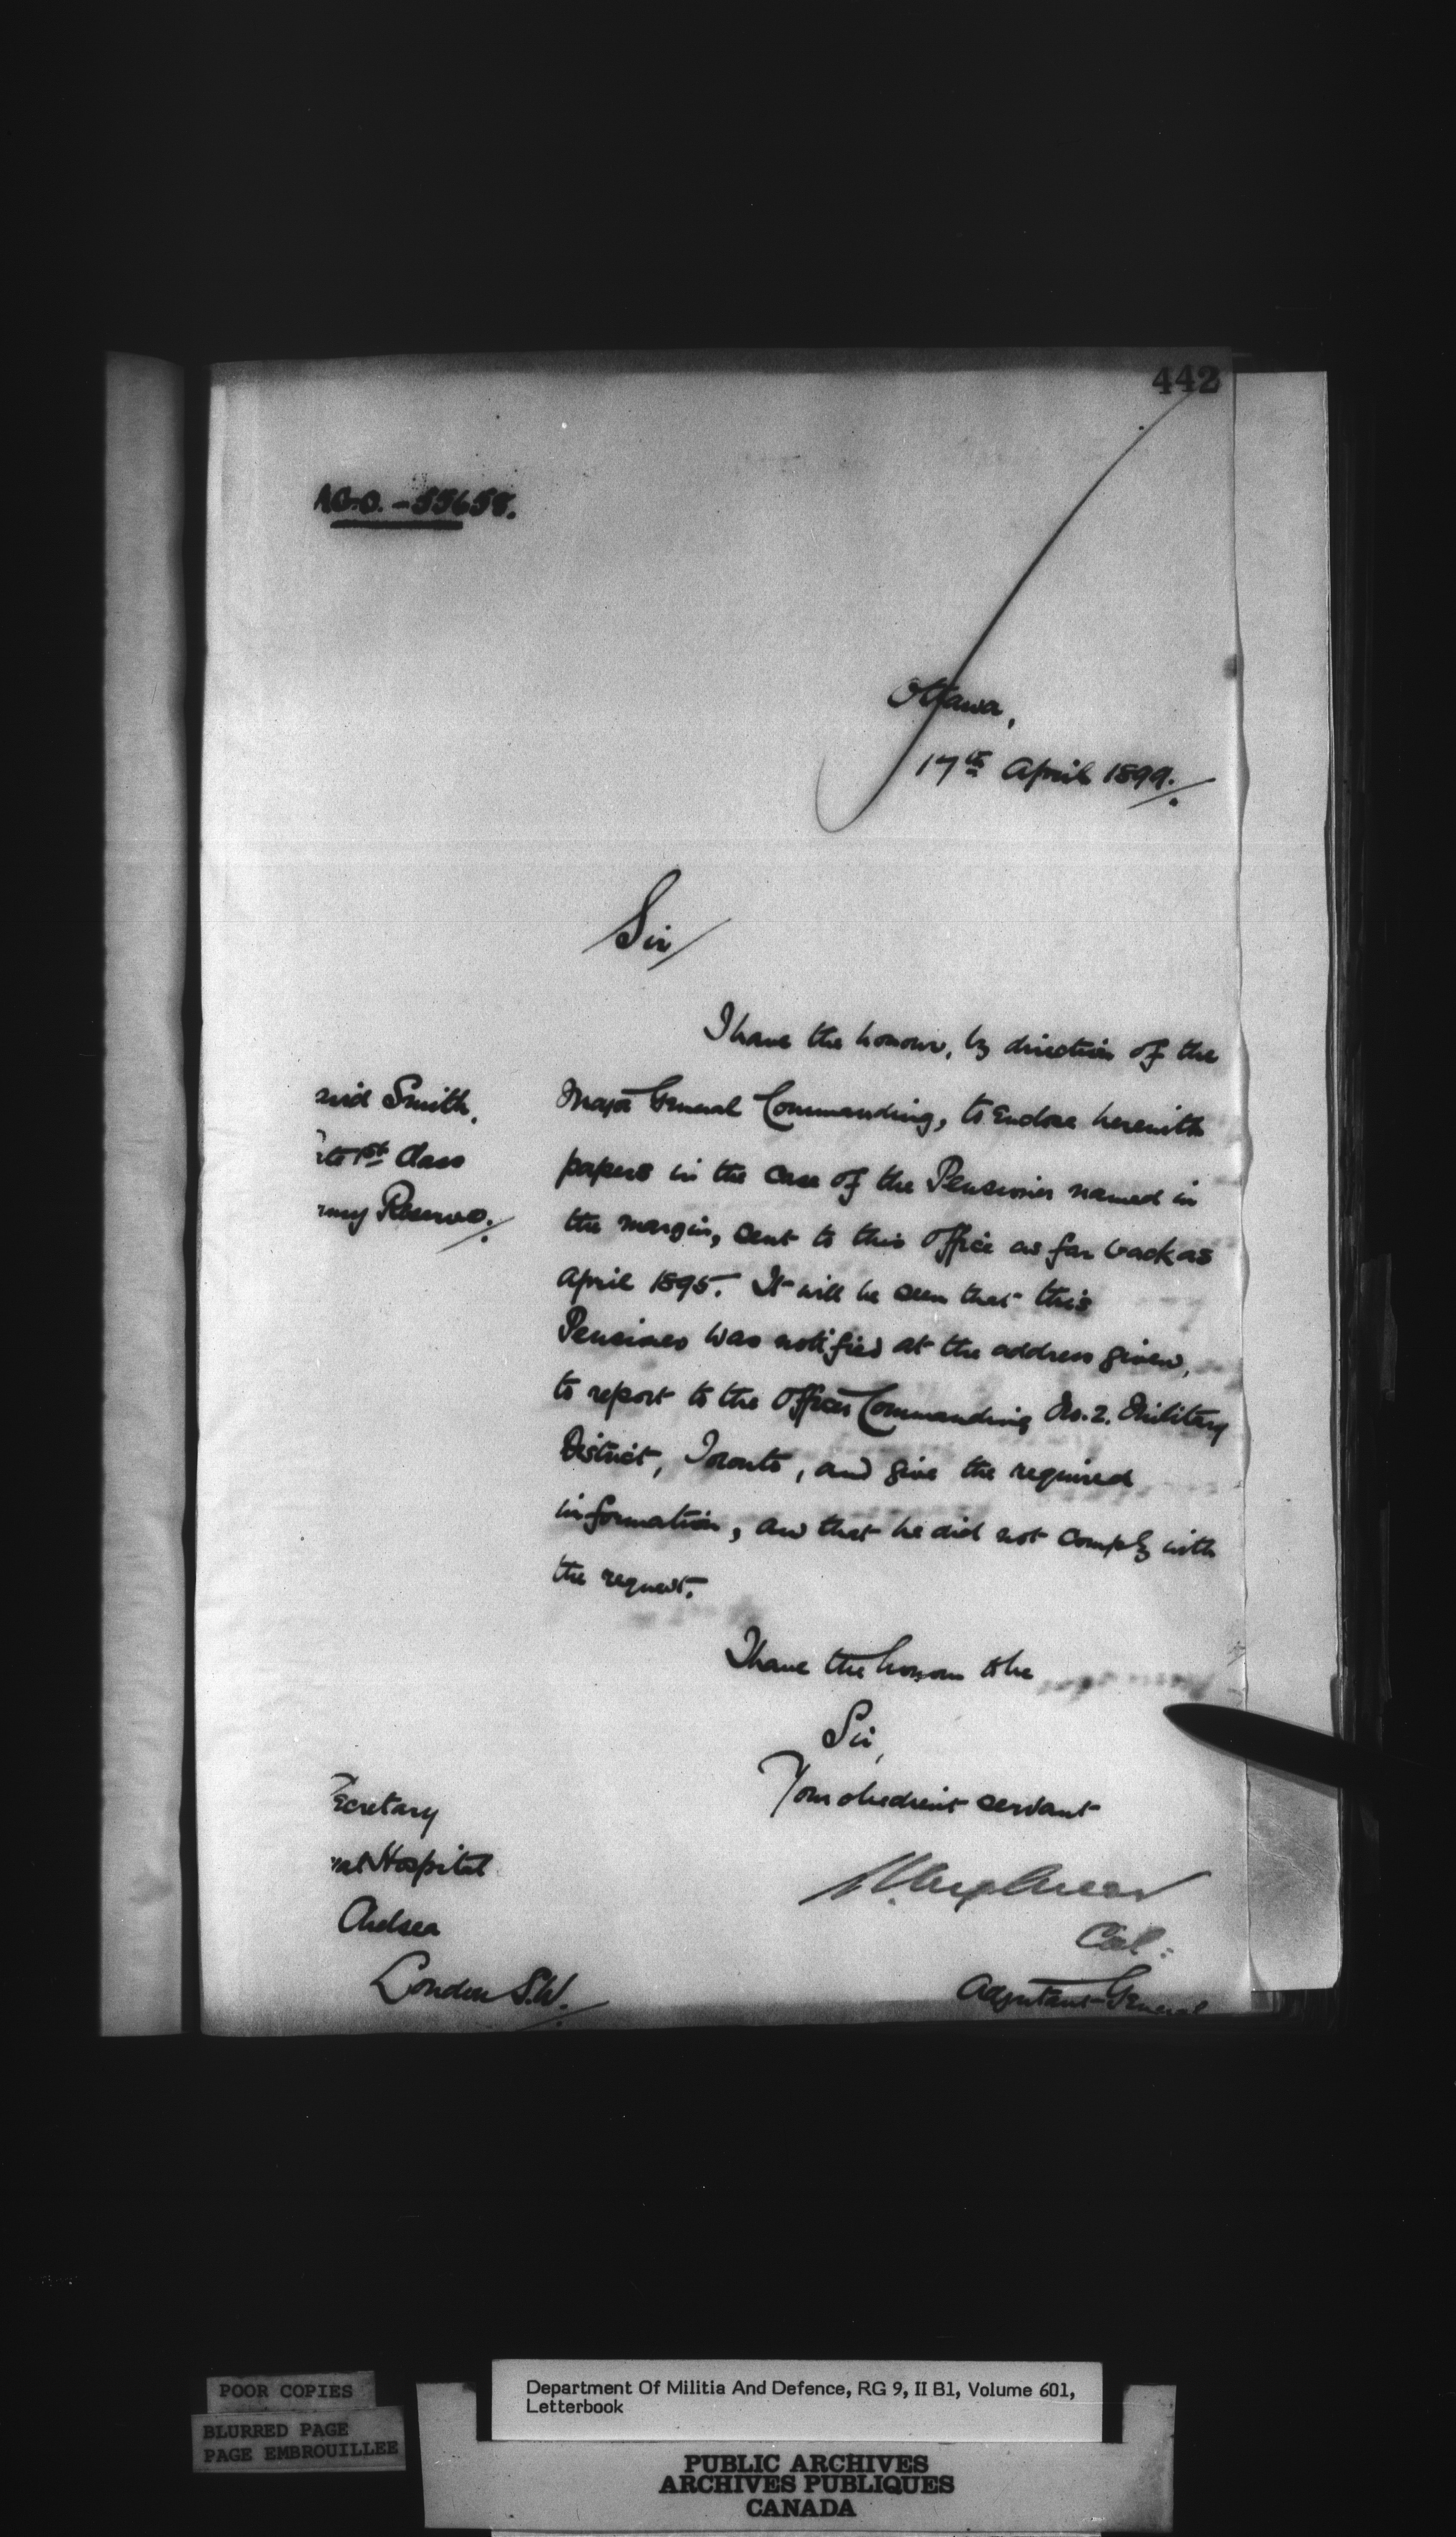 442
A.G.O. - 55658.
Ottawa,
17th April 1899.
Sir/
I have the honour, by direction of the
Major General Commanding, to enclose herewith
papers in the case of the Pensioner named in
the margin, sent to this Office as far back as
April 1895. It will be seen that this
Pensioner was notified at the address given,
to report to the Officer Commanding No. 2. Military
District, Toronto, and give the required
information, and that he did not comply with
the request.
avid Smith,
ate 1st Class
rmy Reserve.
I have the honour to be
Sir,
Your obedient servant
Col:
Adjutant General
ecretary
yal Hospital
Chelsea
London S.W.
POOR COPIES
BLURRED PAGE
PAGE EMBROUILLEE
Department Of Militia And Defence, RG 9, II B1, Volume 601,
Letterbook
PUBLIC ARCHIVES
ARCHIVES PUBLIQUES
CANADA